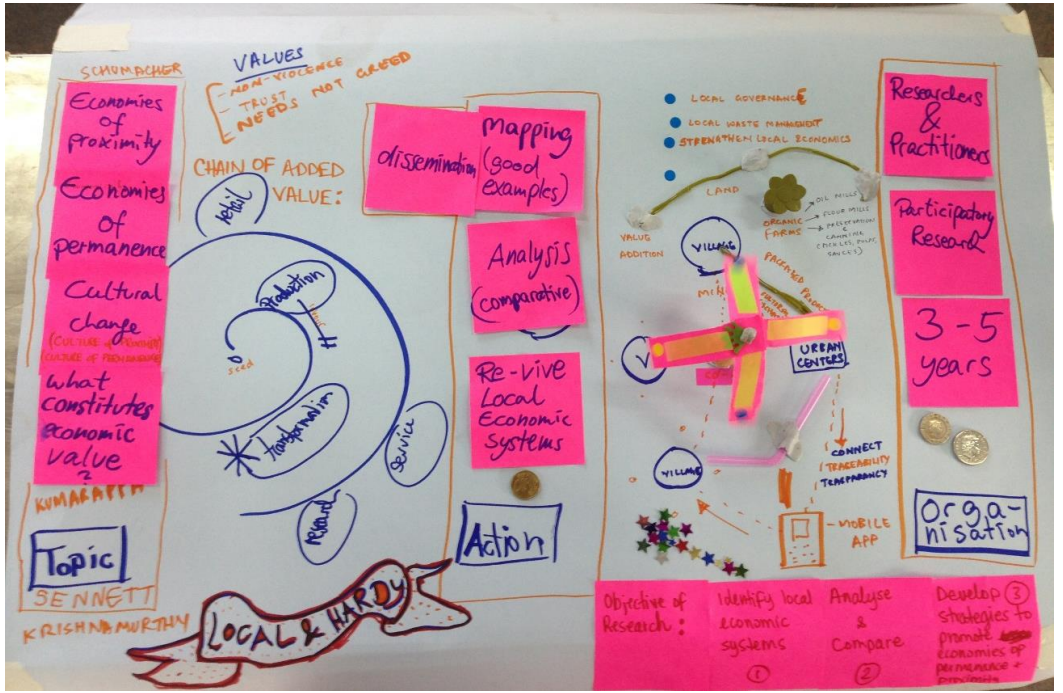 SCHUMACHER
Economies
of
proximity
Economies
of
permanence
Cultural
change
what
constitutes
economic
value
?
KUMARAPPA
Topic
SENNETT
KRISHNAMURTHY
VALUES
- NON-VIOLENCE
- TRUST
NEEDS NOT GREED
CHAIN OF ADDED
VALUE:
retail
Production
seed
transformation
Service
research
LOCAL & HARDY
dissemination
Mapping
(good
examples)
Analysis
(comparative)
Re-vive
Local
Economic
Systems
Action
LOCAL GOVERNANCE
LOCAL WASTE MANAGMENT
STRENGTHEN LOCAL ECONOMICS
LAND
VALUE
ADDITION
ORGANIC
FARMS
OIL MILLS
FLOUR MILLS
PRESERVATION
&
CANNING
SAUCES)
VILLAGE
V
URBAN
CENTERS
VILLAGE
CONNECT
TRACEABILITY
TRASPARANCY
- MOBILE
APP
Researchers
&
Practitioners
Participatory
Research
3-5
years
Orga-
nisation
Objective of
Research:
Identify local
economic
systems
1
Analyse
&
Compare
2
Develop 3
strategies to
promote
economies of
permanence +
proximity